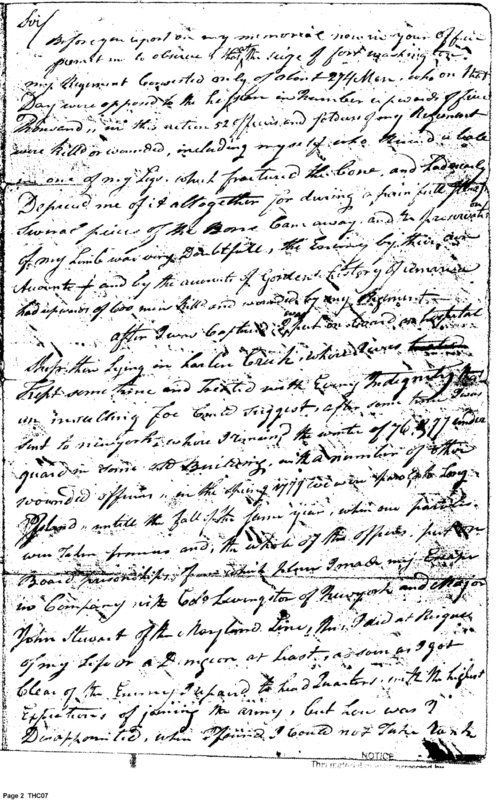 Sir/
Before you report on my memorial now in your office
permit me to observe that at the seige of fort washington
my Regiment Consisted only of about 274 Men, who on that
Day were opposed to the hessian in Number upwards of five
Thousand, in this action 52 officers and soldiers of my Regiment
were killd or wounded, including myself who Received a ball
in one of my Legs which fractured the bone, and had nearly
Deprived me of it altogether for during a painfull
Several pieces of the Bone Came away and the preservation
of my Limb was very Doubtfull, the Enemy by their own
Accounts & and by the accounts of Gordens History of america
had upwards of 600 men killd and wounded by my Regiment
after I was Captured, I was put on board an hospital
Ship, then Lying in harlem Creek, where I was
kept some time and treated with Every Indignity that
an insulting foe Could suggest, after some time I was
sent to newyork, where I remaind the winter of 76 & 77 under
guard in some old Building, with a number of other
wounded officers, in the spring 1777 we were parold to Long
Island, untill the fall of the same year, when our parole
were taken from us and the whole of the officers put on
Board prison ships, from which place I made my Escape
in Company with Colo Livingston of Newyork and Major
John Stewart of the Maryland Line, this I did at Risque
of my Life or a Dungeon at Least, as soon as I got
Clear of the Enemy I repaird to head Quarters, with the highest
Expectations of joining the army, but how was I
Disappointed, when I found I Could not Take Rank
NOTICE
This material may be protected by
Page 2 THC07